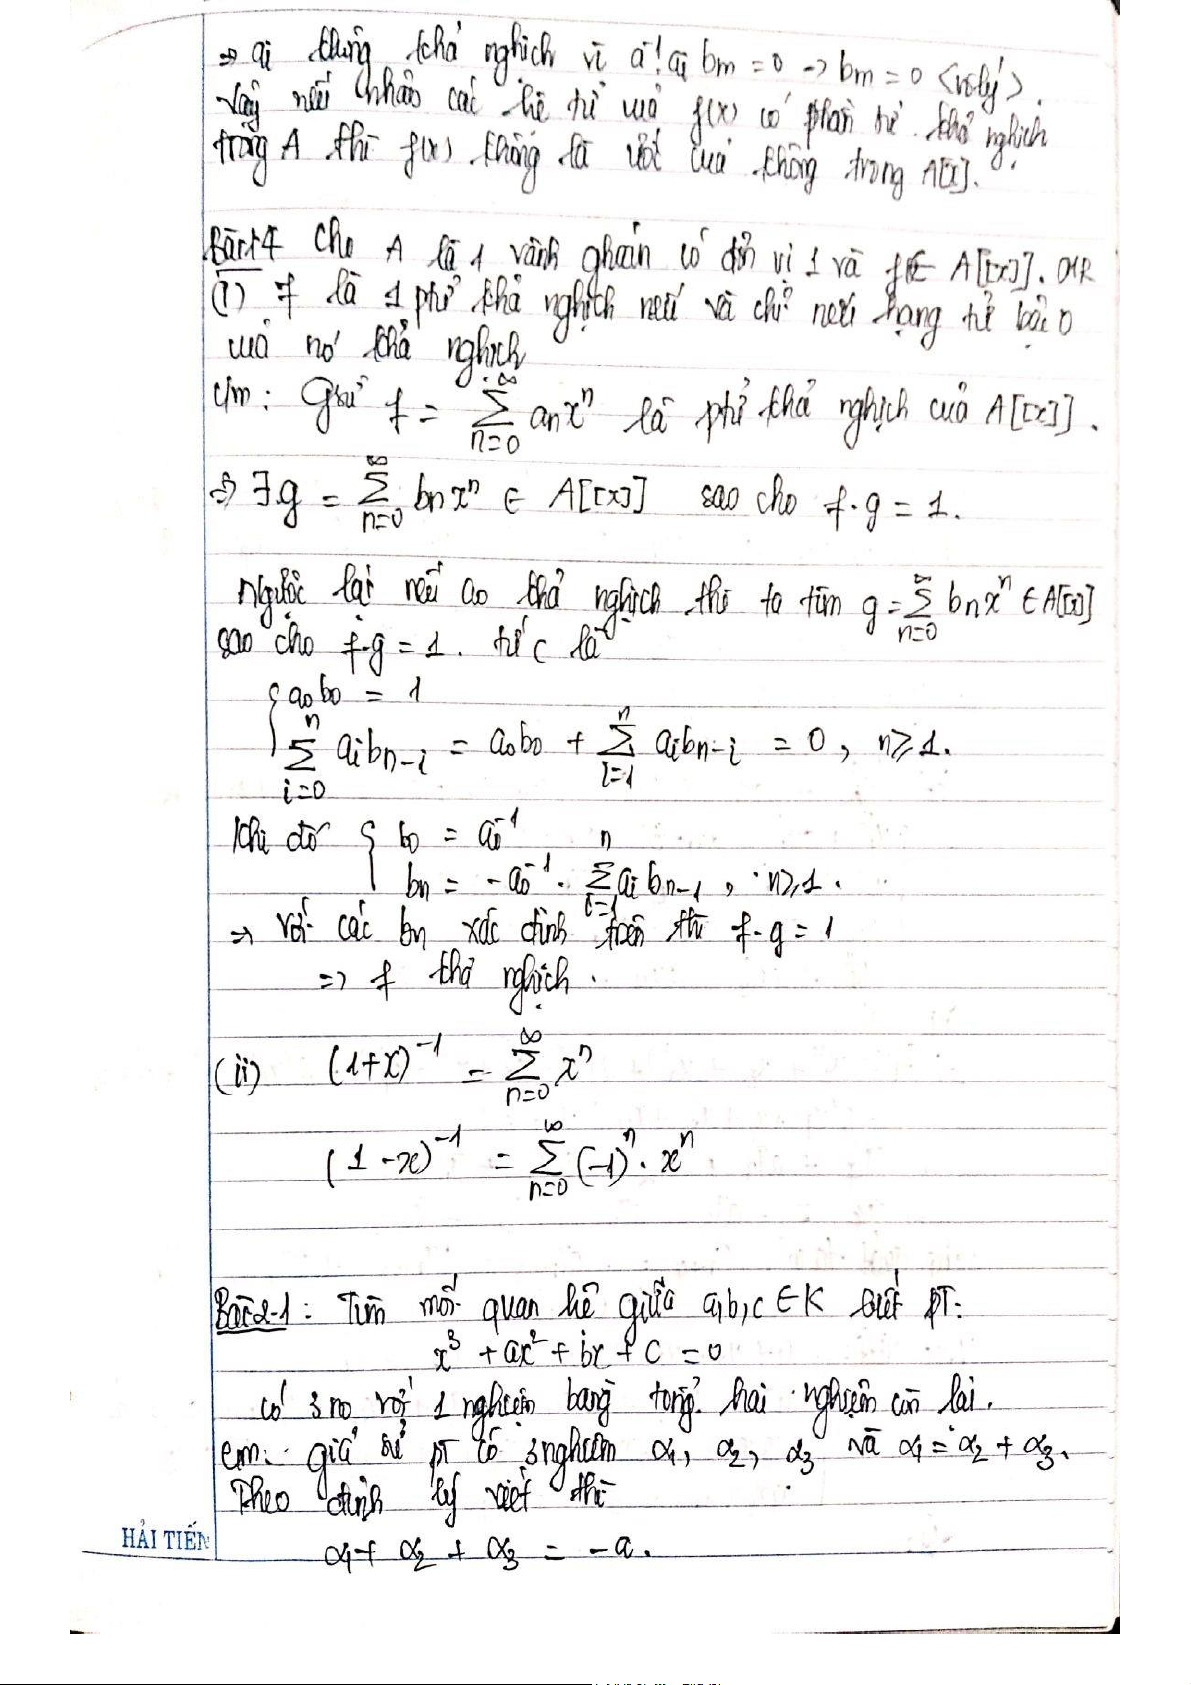 ⇒ ai không khả nghịch vì a⁻¹.ai bm = 0 → bm = 0 <vô lý>.
Vậy nếu nhân các hệ tử của f(x) có phần tử khả nghịch
trong A thì f(x) không là ước của không trong A[x].
Bài 1.4 Cho A là 1 vành giao hoán có đơn vị 1 và f ∈ A[[x]]. CMR
(i) f là 1 ptử khả nghịch nếu và chỉ nếu hạng tử bậc 0
của nó khả nghịch
C/m: Gsử f = ∑_{n=0}^{∞} anxⁿ là ptử khả nghịch của A[[x]].
⇒ ∃ g = ∑_{n=0}^{∞} bnxⁿ ∈ A[[x]] sao cho f·g = 1.
Ngược lại nếu a0 khả nghịch thì ta tìm g = ∑_{n=0}^{∞} bnxⁿ ∈ A[[x]]
sao cho f·g = 1. tức là
{ a0b0 = 1
∑_{i=0}^{n} aibn-i = a0b0 + ∑_{i=1}^{n} aibn-i = 0, n ≥ 1.
Khi đó { b0 = a0⁻¹
bn = -a0⁻¹. ∑_{i=1}^{n} ai bn-1, n ≥ 1.
⇒ với các bn xác định trên thì f·g = 1
⇒ f khả nghịch.
(ii) (1+x)⁻¹ = ∑_{n=0}^{∞} xⁿ
(1-x)⁻¹ = ∑_{n=0}^{∞} (-1)ⁿ. xⁿ
Bài 2-1: Tìm mối quan hệ giữa a,b,c ∈ K biết PT:
x³ + ax² + bx + c = 0
có 3 no với 1 nghiệm bằng tổng hai nghiệm còn lại.
cm: giả sử pt có 3 nghiệm α1, α2, α3 và α1 = α2 + α3.
Theo định lý viét thì
α1 + α2 + α3 = -a.
HẢI TIẾN